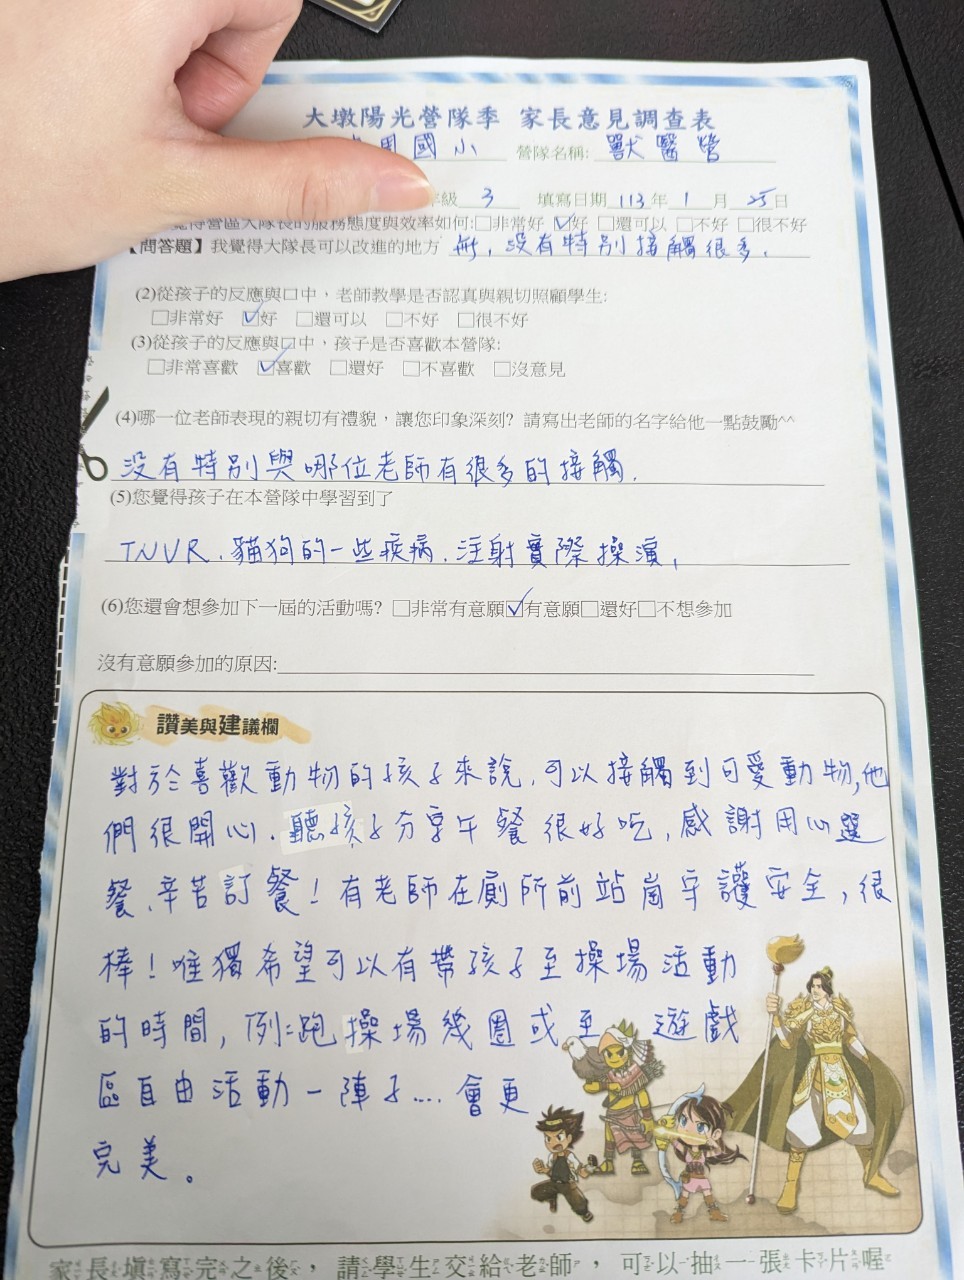 大墩陽光營隊季 家長意見調查表
國小 營隊名稱: 獸醫營
年級 3 填寫日期 113 年 1 月 25 日
覺得營區大隊長的服務態度與效率如何:□非常好 ☑好 □還可以 □不好 □很不好
【問答題】我覺得大隊長可以改進的地方 無,沒有特別接觸很多.
(2)從孩子的反應與口中，老師教學是否認真與親切照顧學生:
□非常好 ☑好 □還可以 □不好 □很不好
(3)從孩子的反應與口中，孩子是否喜歡本營隊:
□非常喜歡 ☑喜歡 □還好 □不喜歡 □沒意見
(4)哪一位老師表現的親切有禮貌，讓您印象深刻? 請寫出老師的名字給他一點鼓勵^^
沒有特別與哪位老師有很多的接觸.
(5)您覺得孩子在本營隊中學習到了
TNVR、貓狗的一些疾病、注射實際操演,
(6)您還會想參加下一屆的活動嗎? □非常有意願☑有意願□還好□不想參加
沒有意願參加的原因:
讚美與建議欄
對於喜歡動物的孩子來說,可以接觸到可愛動物,他
們很開心、聽孩子分享午餐很好吃,感謝用心選
餐、辛苦訂餐!有老師在廁所前站崗守護安全,很
棒!唯獨希望可以有帶孩子至操場活動
的時間,例:跑操場幾圈或至 遊戲
區自由活動一陣子....會更
完美。
家長填寫完之後，請學生交給老師，可以抽一張卡片喔